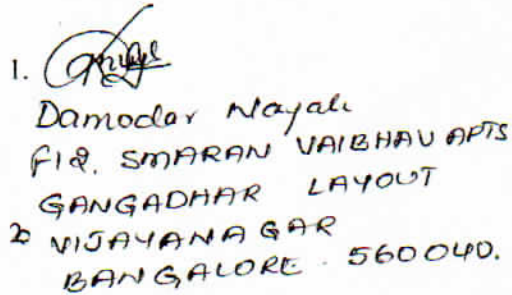 1.
Damodar Nayak
F12. SMARAN VAIBHAV APTS
GANGADHAR LAYOUT
2 VIJAYANAGAR
BANGALORE. 560040.